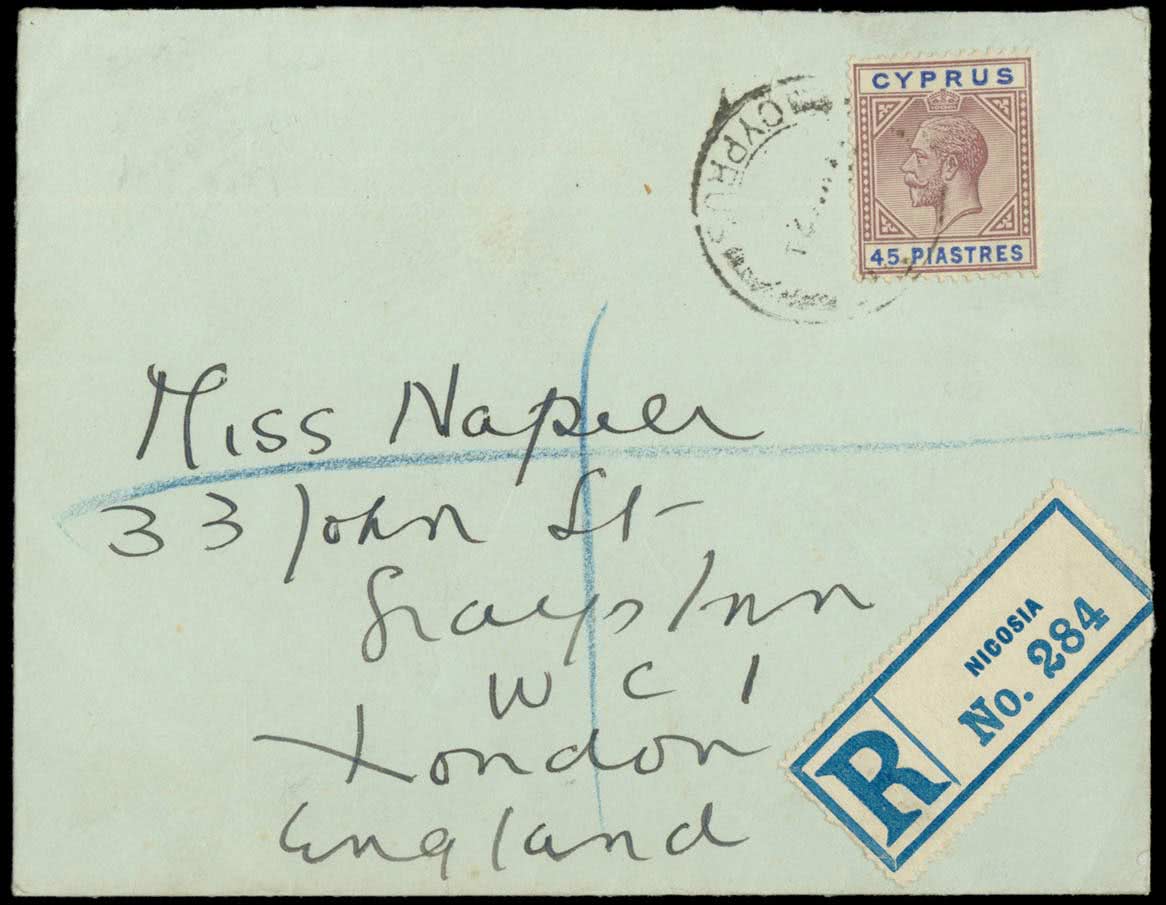 CYPRUS
45 PIASTRES
CYPRUS
Miss Napier
33 John St
Grays Inn
W C 1
London
England
R
NICOSIA
No. 284